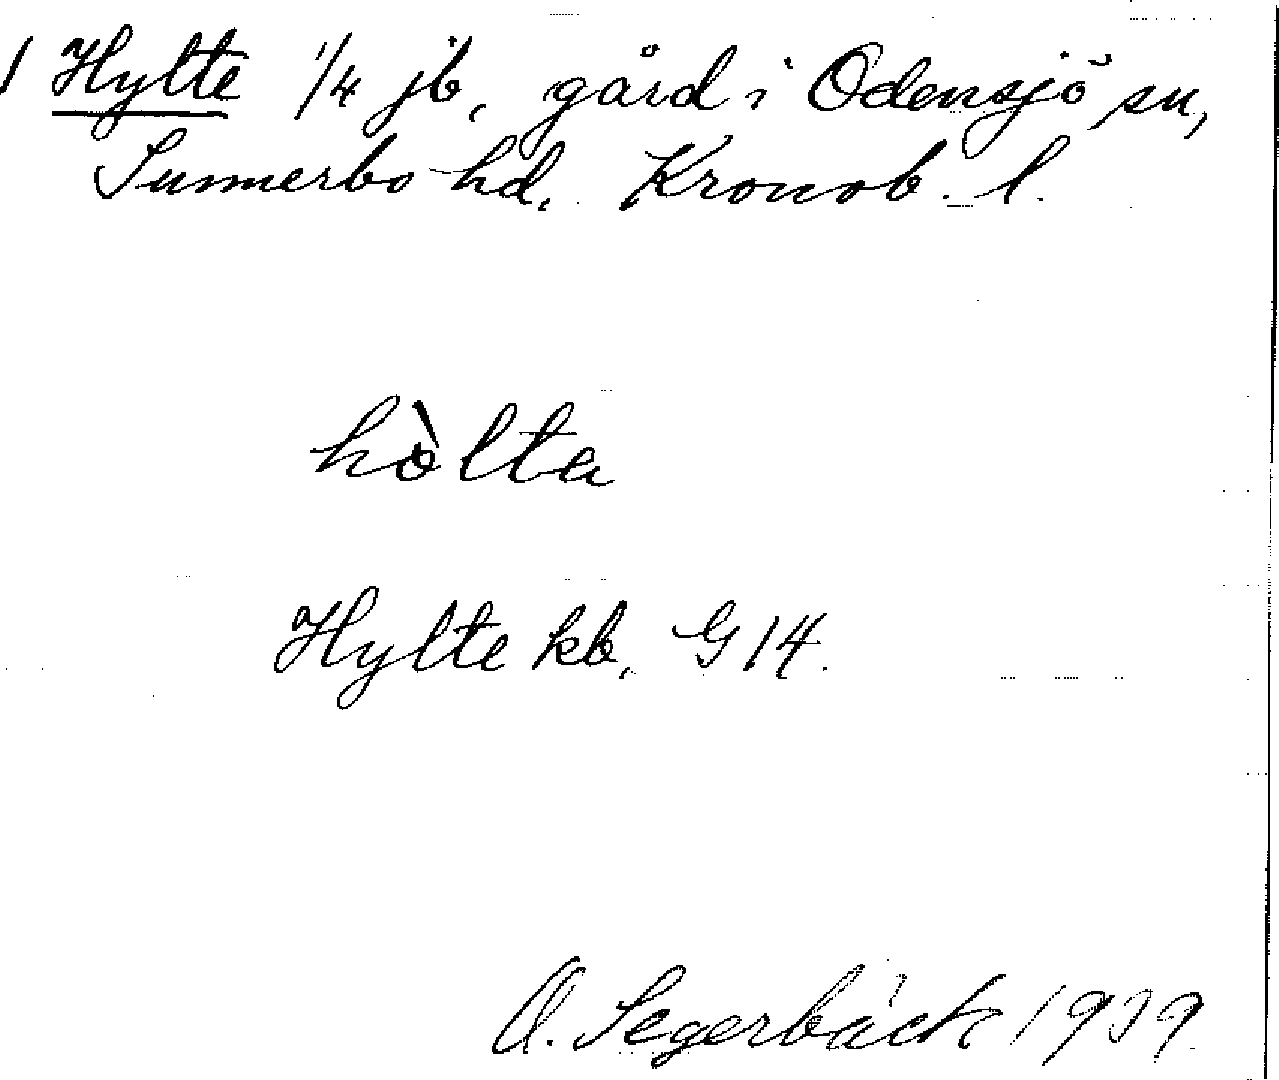 1 Hylte 1/4 jb, gård i Odensjö sn,
Sunnerbo hd. Kronob. l.
hòlta
Hylte kb. G 14.
O. Segerbäck 1939